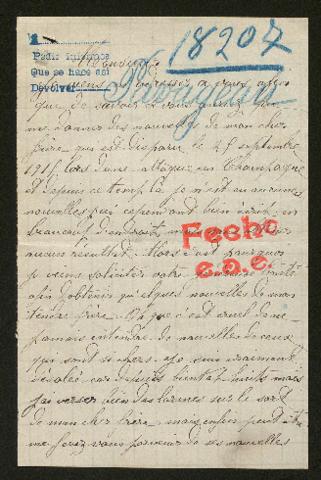 1-
Pedir informes
Que se hace así
Devolver
18207
Monsieur
que de savoir si vous auriez
me donner des nouvelles de mon cher
frère qui est disparu le 25 septembre
1915 lors d'une attaque en Champagne
et depuis ce temp la je n'ait eu aucunes
nouvelles j'ai cependant bien écrit en
beaucoup d'endroits mais
aucun résultat. Alors c'est pourquoi
je viens solliciter votre
afin d'obtenir quelques nouvelles de mon
tendre frère. que c'est cruel de ne
jamais entendre de nouvelles de ceux
qui sont si chers. Je suis vraiment
désolée car depuis bientôt huits mois
j'ai verser bien des larmes sur le sort
de mon cher frère, mais enfin peut être
me serez vous porteur de ses nouvelles
Fecho
c.o.e.